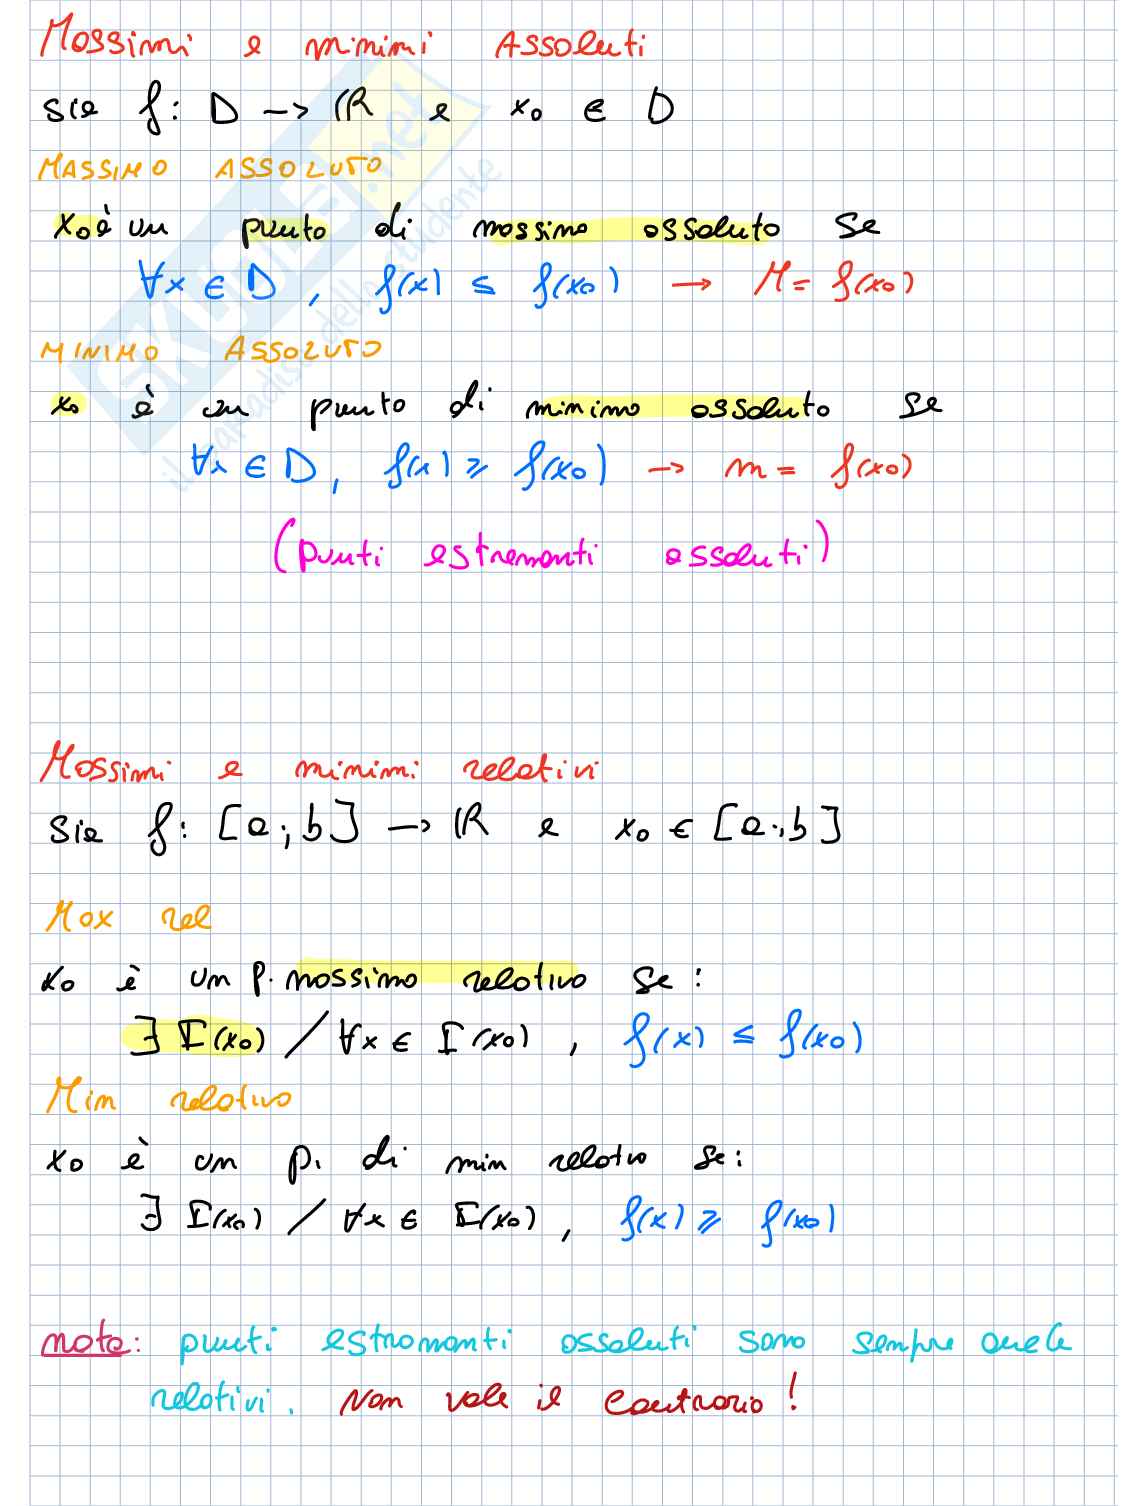 Massimi e minimi Assoluti
sia f: D -> ℝ e x₀ ∈ D
MASSIMO ASSOLUTO
x₀ è un punto di massimo assoluto se
∀x ∈ D, f(x) ≤ f(x₀) → M = f(x₀)
MINIMO ASSOLUTO
x₀ è un punto di minimo assoluto se
∀x ∈ D, f(x) ≥ f(x₀) → m = f(x₀)
(punti estremanti assoluti)
Massimi e minimi relativi
Sia f: [a; b] → ℝ e x₀ ∈ [a; b]
Max rel
x₀ è un p. massimo relativo se:
∃ I(x₀) / ∀x ∈ I(x₀), f(x) ≤ f(x₀)
Min relativo
x₀ è un p. di min relativo se:
∃ I(x₀) / ∀x ∈ I(x₀), f(x) ≥ f(x₀)
nota: punti estremanti assoluti sono sempre anche
relativi. Non vale il contrario!
SKUOLA.net
il paradiso dello studente